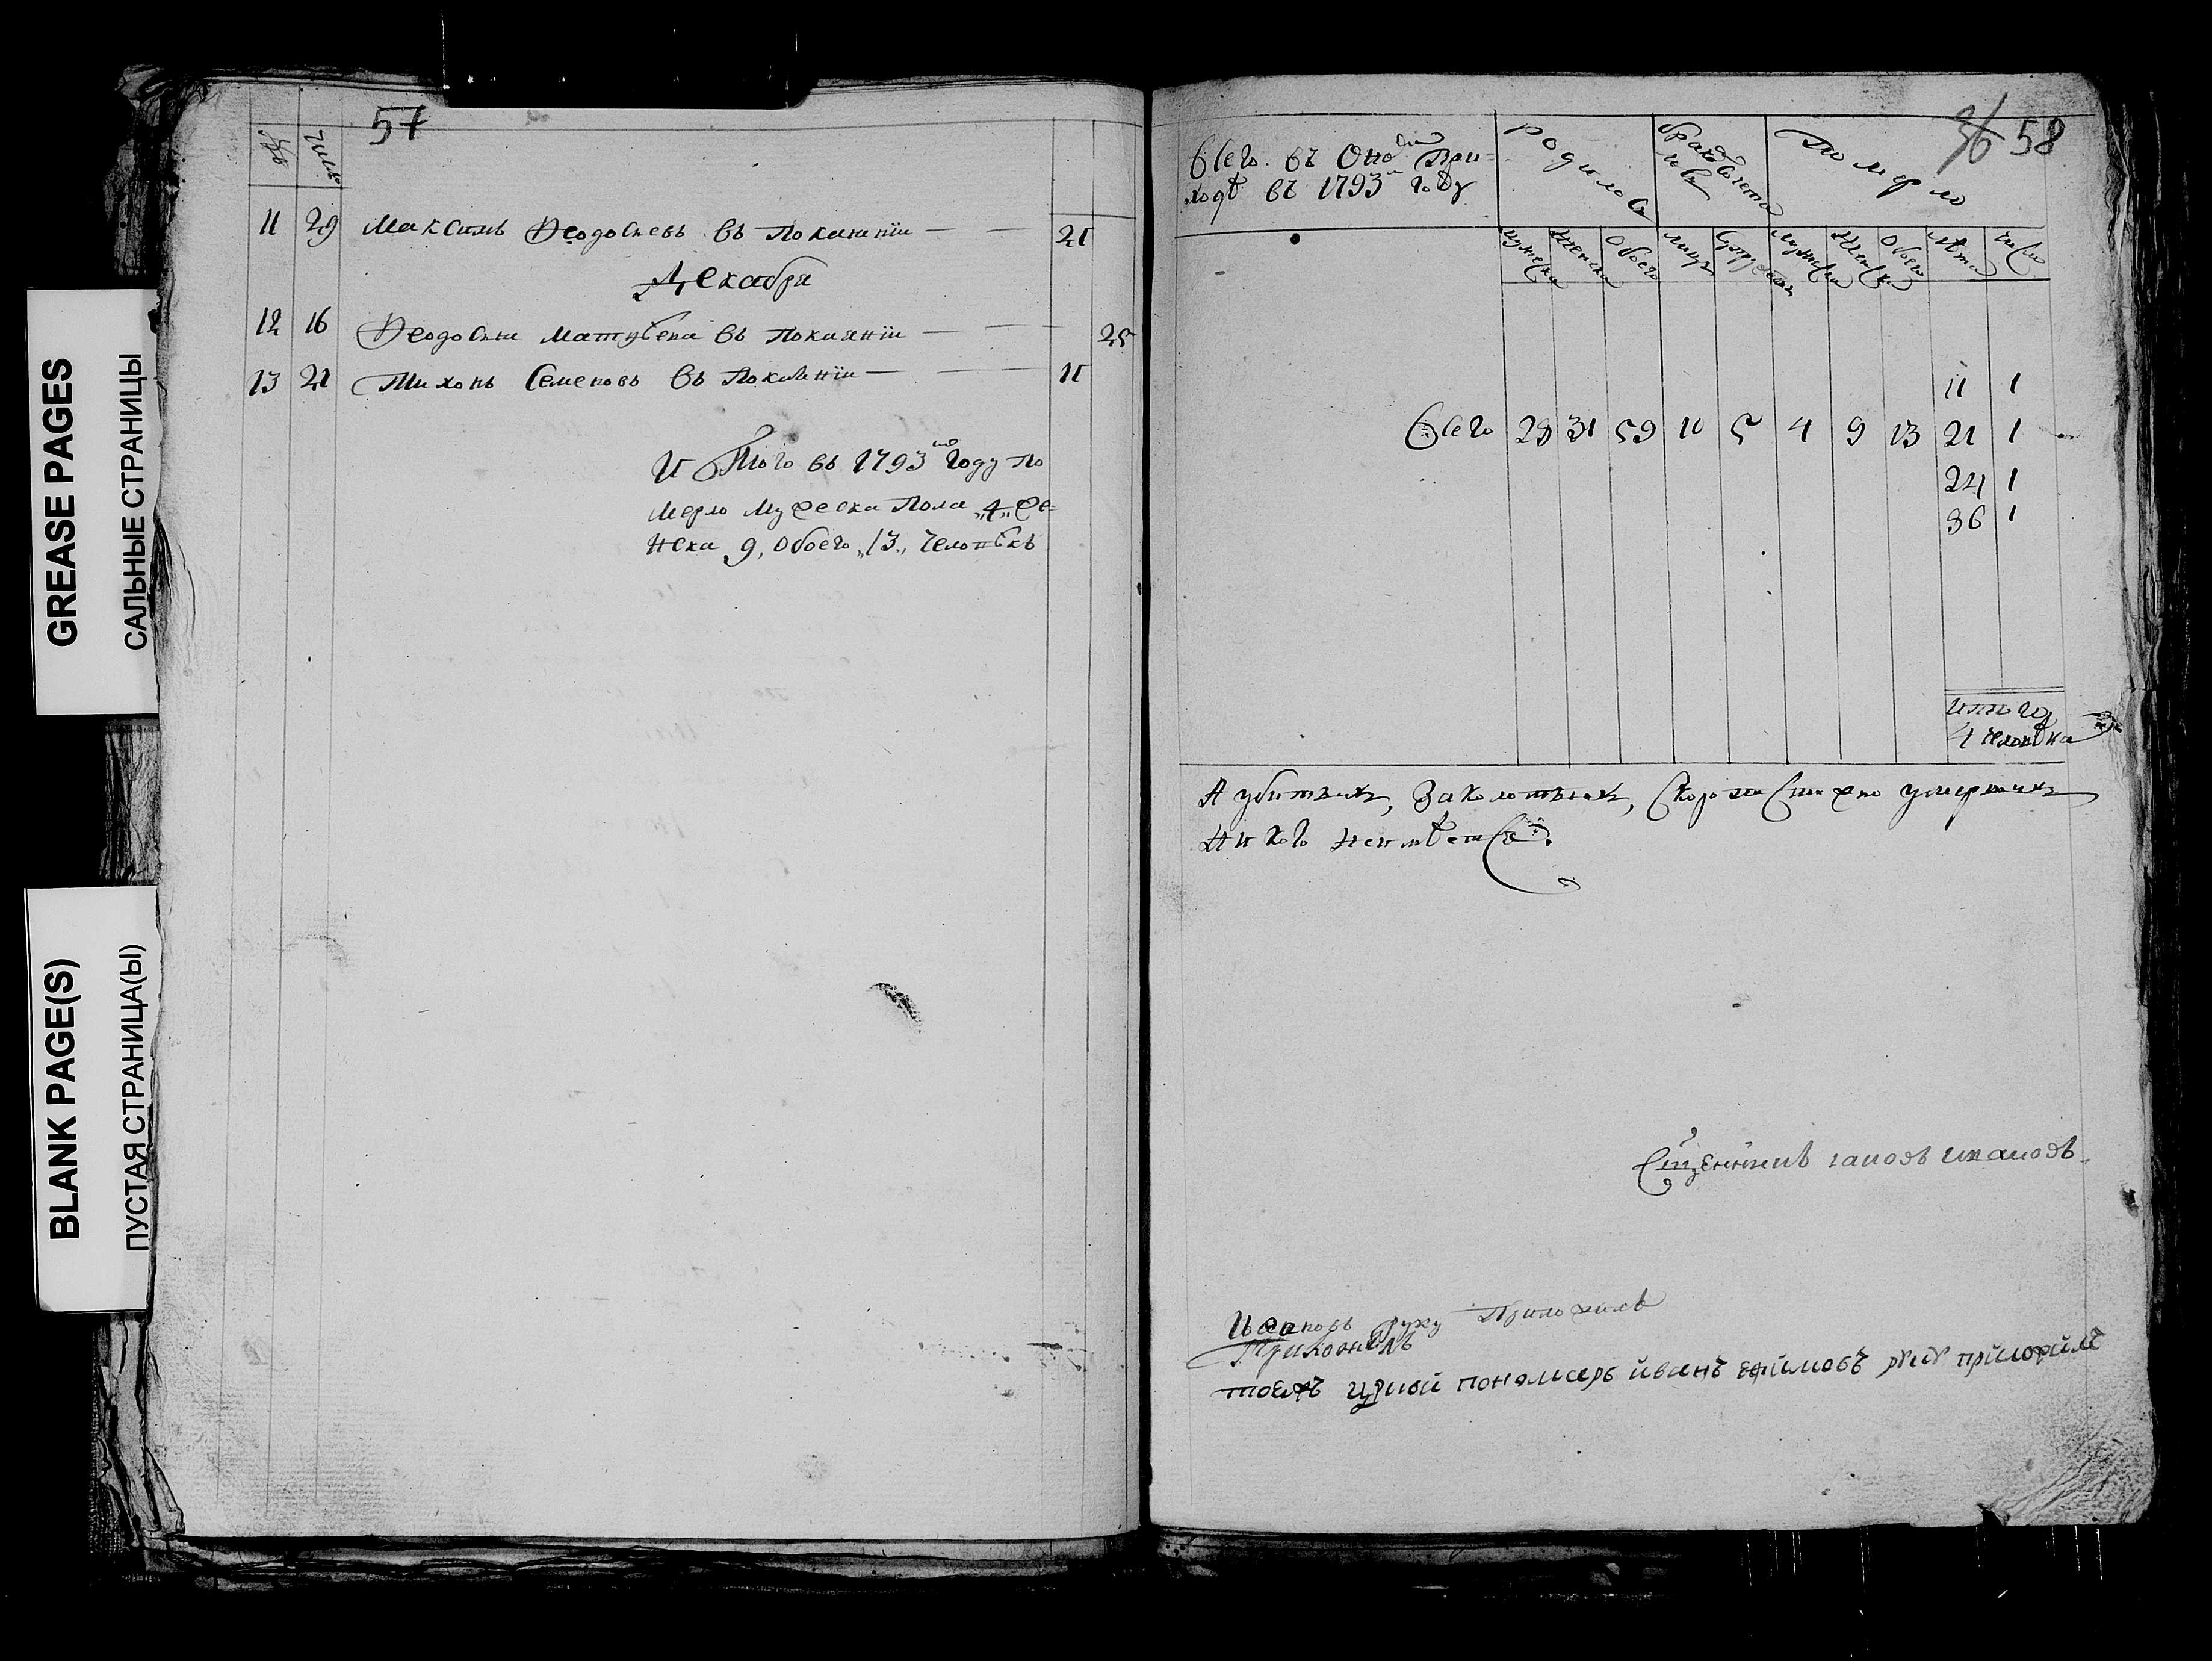 GREASE PAGES
САЛЬНЫЕ СТРАНИЦЫ
BLANK PAGE(S)
ПУСТАЯ СТРАНИЦА(Ы)
57
число
11 29 Максимъ Ѳеодосиевъ въ Покаянїи — — 21
Декабря
12 16 Ѳеодосия Матвѣева въ Покаянїи — — 25
13 21 Тихонъ Семеновъ въ Покаянїи — — 11
И Того въ 1793мъ Году По
мерло Мужеска Пола „4„ Же
нска „9„ Обоего „13„ Человѣкъ
36 58
Всего въ Ономъ При-
ходѣ въ 1793м Году
родилось
бракосочетались
Померло
мужеска женска Обоего лица супружествъ мужеска женска Обоего лѣта число
11 1
Всего 28 31 59 10 5 4 9 13 21 1
24 1
36 1
итого
4 человѣка
А убитыхъ, Заколотыхъ, Скоропостижно умершихъ
никого неимѣется.
Сщенникъ иаковъ ивановъ
Ивановъ руку Приложилъ
тоежъ црквй пономаръ иванъ ефимовъ руку приложилъ